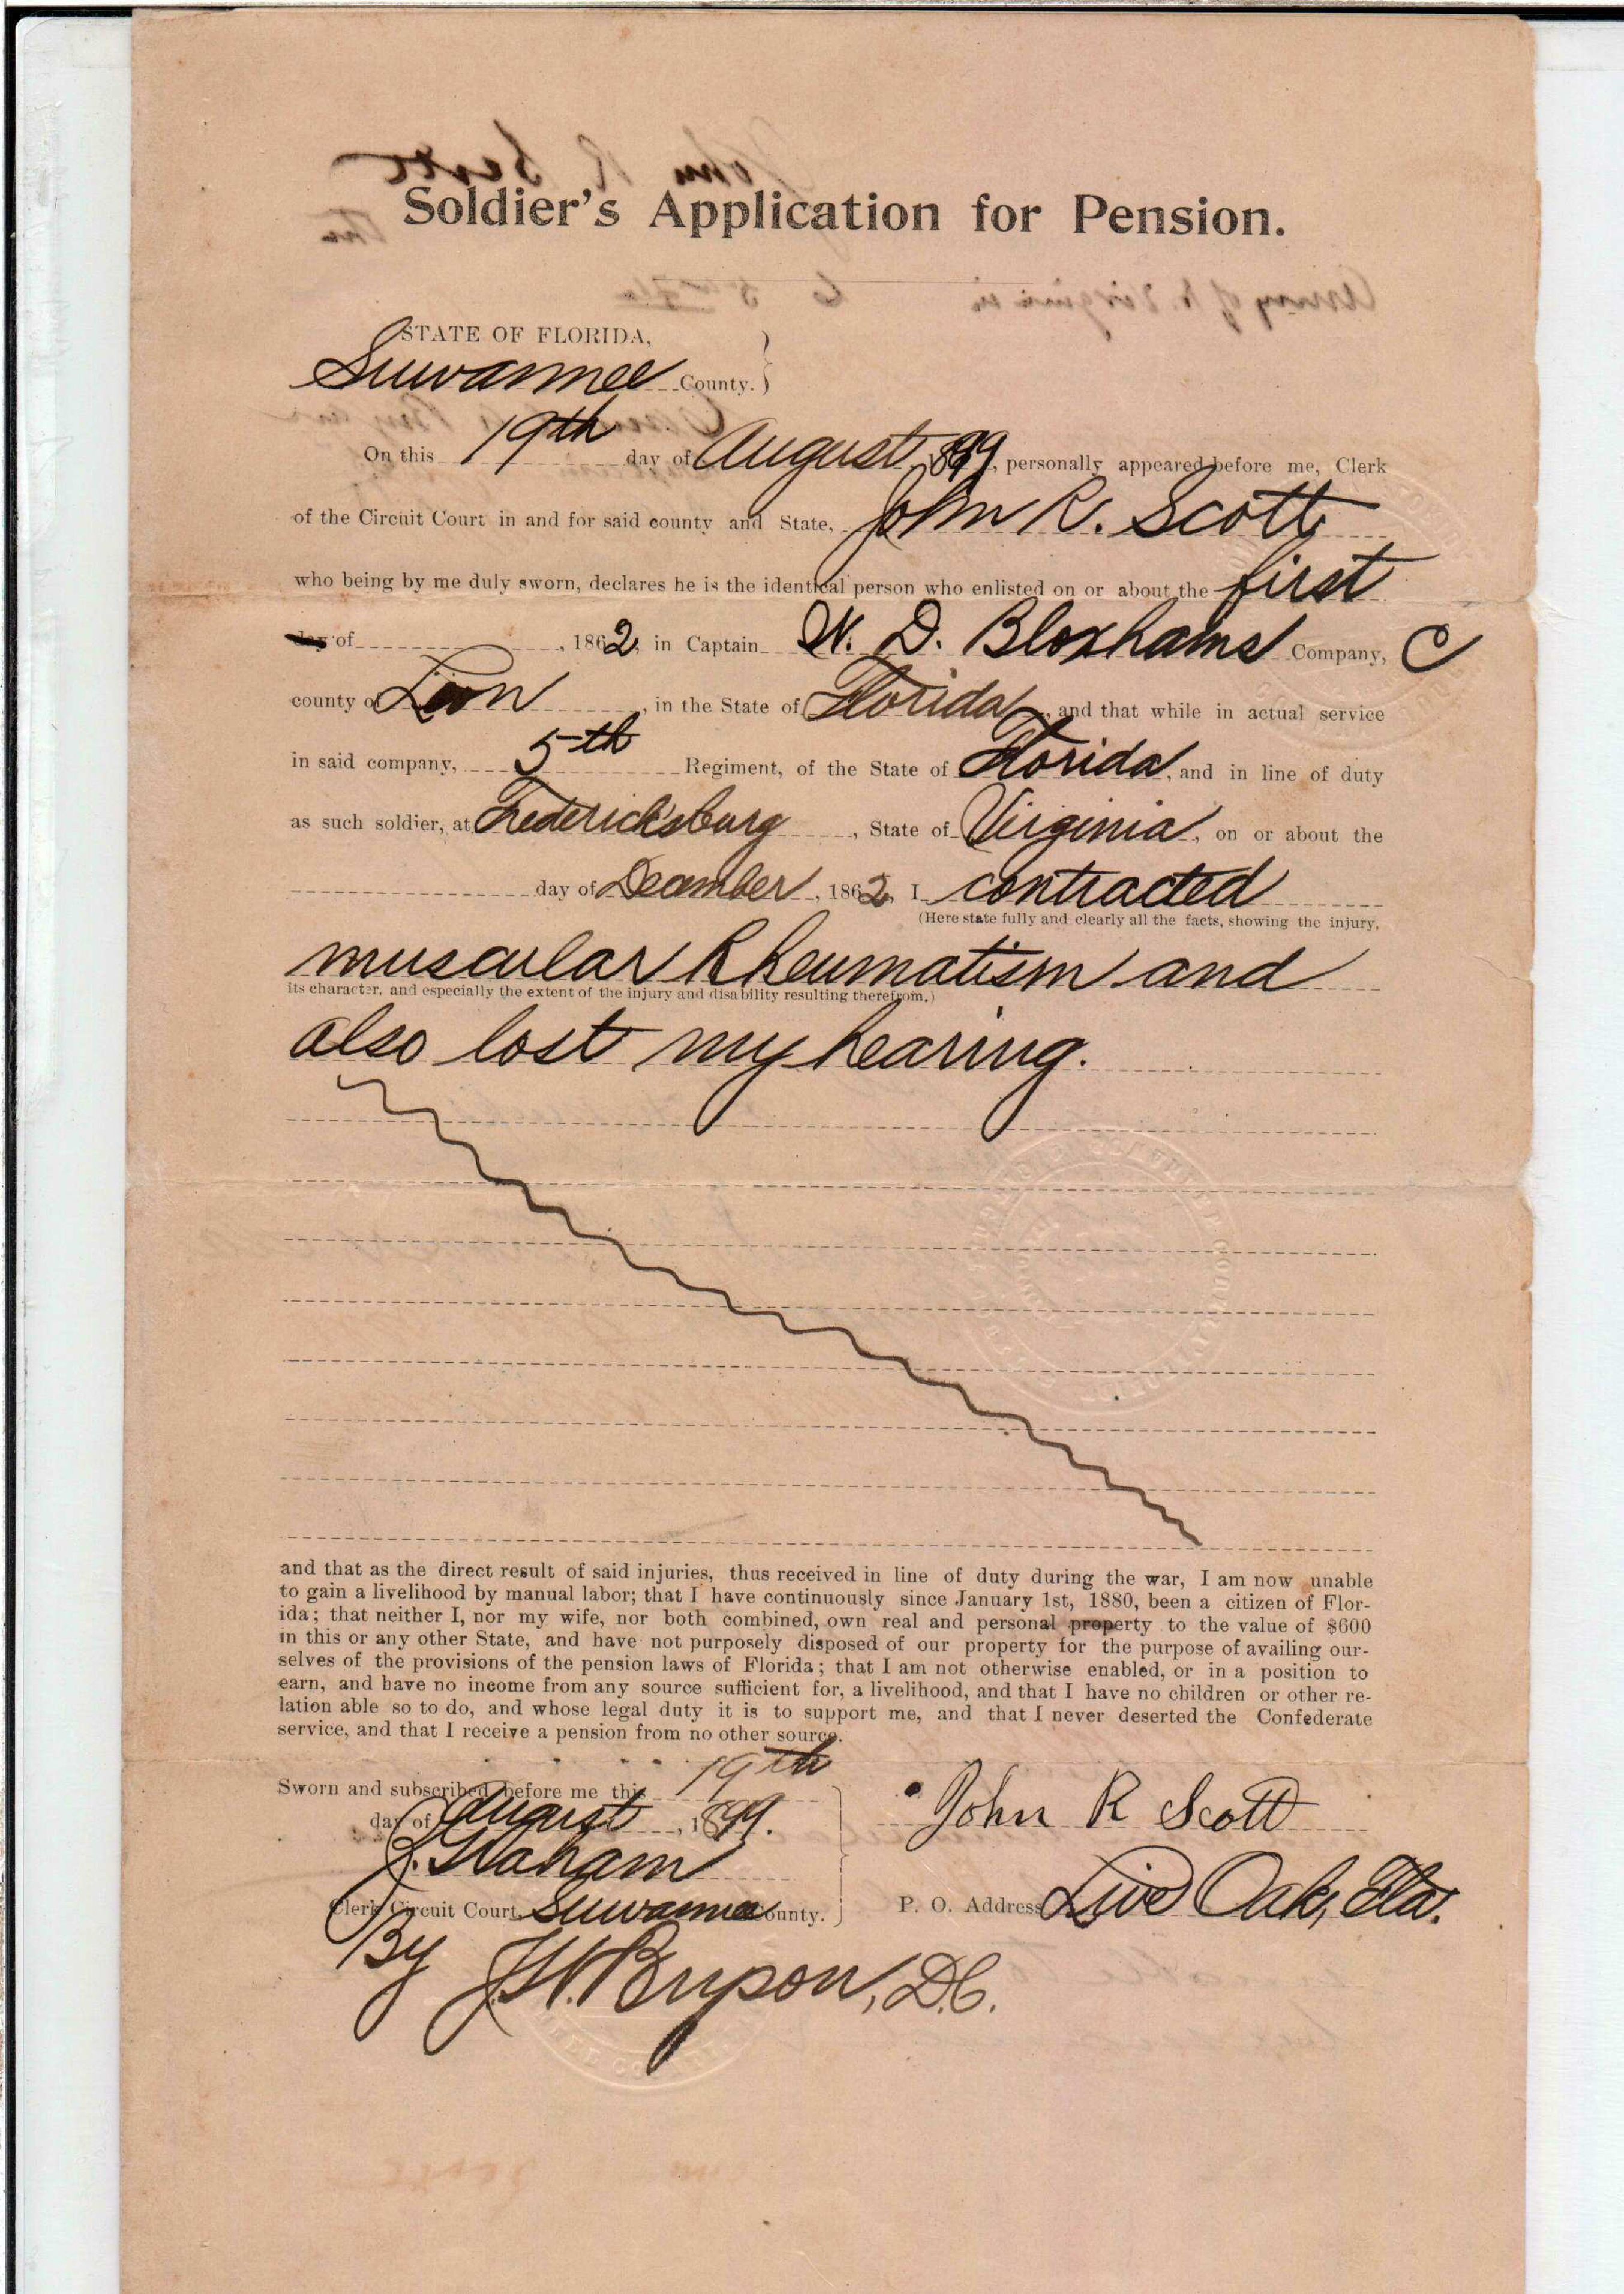 Soldier's Application for Pension.
STATE OF FLORIDA,
Suwannee County.
On this 19th day of August 1899, personally appeared before me, Clerk
of the Circuit Court in and for said county and State, John R. Scott
who being by me duly sworn, declares he is the identical person who enlisted on or about the first
day of , 1862, in Captain W. D. Bloxhams Company, C
county of Leon, in the State of Florida, and that while in actual service
in said company, 5th Regiment, of the State of Florida, and in line of duty
as such soldier, at Fredericksburg, State of Virginia, on or about the
day of December, 1862, I contracted
(Here state fully and clearly all the facts, showing the injury,
muscular Rheumatism and
its character, and especially the extent of the injury and disability resulting therefrom.)
also lost my hearing.
and that as the direct result of said injuries, thus received in line of duty during the war, I am now unable
to gain a livelihood by manual labor; that I have continuously since January 1st, 1880, been a citizen of Flor-
ida; that neither I, nor my wife, nor both combined, own real and personal property to the value of $600
in this or any other State, and have not purposely disposed of our property for the purpose of availing our-
selves of the provisions of the pension laws of Florida; that I am not otherwise enabled, or in a position to
earn, and have no income from any source sufficient for, a livelihood, and that I have no children or other re-
lation able so to do, and whose legal duty it is to support me, and that I never deserted the Confederate
service, and that I receive a pension from no other source.
Sworn and subscribed before me this 19th
day of August, 1899.
John R Scott
Clerk Circuit Court, Suwannee County.
P. O. Address Live Oak, Fla.
By J. W. Bryson, D.C.